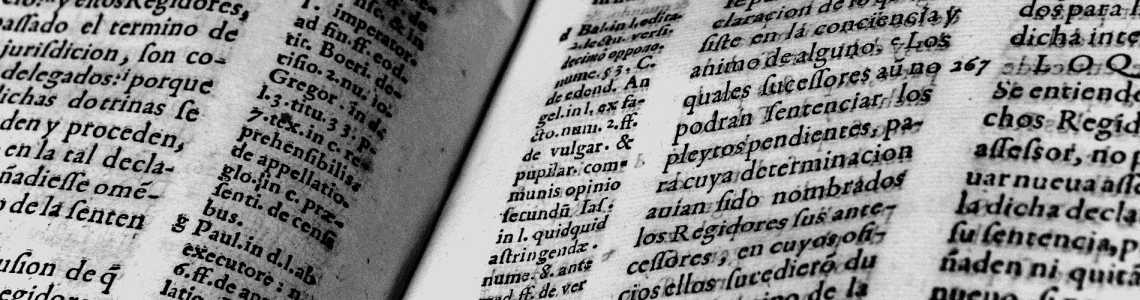 y ellos Regidores,
assado el termino de
jurisdicion, son co-
delegados: i porque
dichas dotrinas se
den y proceden,
en la tal decla-
ñadiesse omẽ-
de la senten
usion de q̃
egidores
ad fin. ff. eod.
tit. Boeri. de-
Gregor. in
l. 3. titu. 3 3. p.
7. tex. in c. re-
prehensibilis
de appellatio.
glo. in c. præ-
senti. de cens
bus.
g Paul. in d. l. ab
executore : n
6. ff. de app
d Bal. in l. edita.
2. lectu. versi.
decimò oppono.
nume. 53. C.
de edend. An
gel. in l. ex fa-
cto. num. 2. ff.
de vulgar. &
pupilar. com-
munis opinio
secundũ Ias.
in l. quidquid
astringendæ.
nume. 8. ante
ff. de ver
claracion de lo que
siste en la conciencia y
animo de alguno, e Los
quales sucessores aũ no
podran sentenciar los
pleytos pendientes, pa-
ra cuya determinacion
auian sido nombrados
los Regidores sus ante-
cessores, en cuyos ofi-
cios ellos sucedierõ du
de la
dos para l
dicha inte
267 L O Q
Se entiend
chos Regid
assessor, no p
uar nueua asse
la dicha decla
su sentencia, p
ñaden ni quita